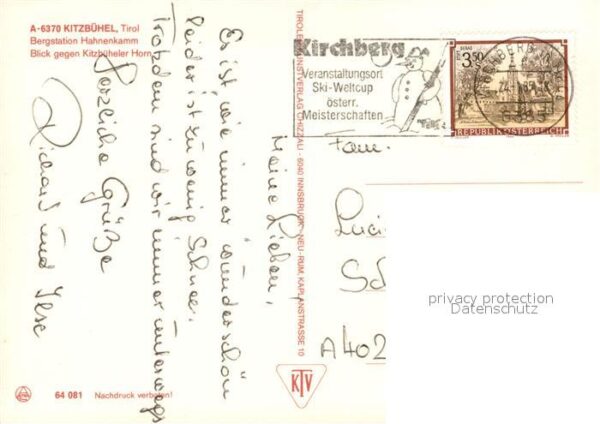 A-6370 KITZBÜHEL, Tirol
Bergstation Hahnenkamm
Blick gegen Kitzbüheler Horn
Meine Lieben,
Es ist wie immer wunderschön
leider ist zu wenig Schnee.
Trotzdem sind wir immer unterwegs
Herzliche Grüße
Richard und Ilse
64 081 Nachdruck verboten!
TIROLER KUNSTVERLAG CHIZZALI - 6040 INNSBRUCK - NEU-RUM, KAPLANSTRASSE 10
KTV
Kirchberg
Veranstaltungsort
Ski-Weltcup
österr.
Meisterschaften
3.50
REPUBLIK ÖSTERREICH
Fam.
Luci
Sc
A 402
privacy protection
Datenschutz